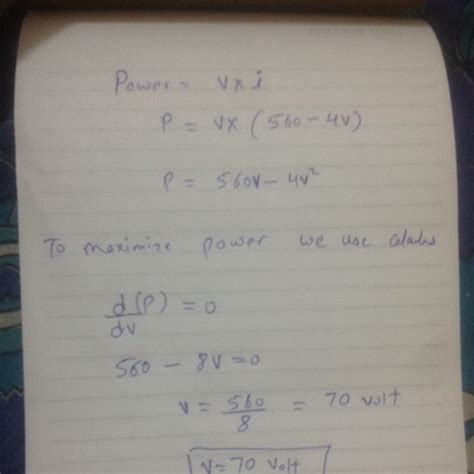 Power = V x i
P = V x (560 - 4V)
P = 560V - 4V²
To maximize power we use calculus
d(P)/dV = 0
560 - 8V = 0
V = 560/8 = 70 volt
V = 70 volt